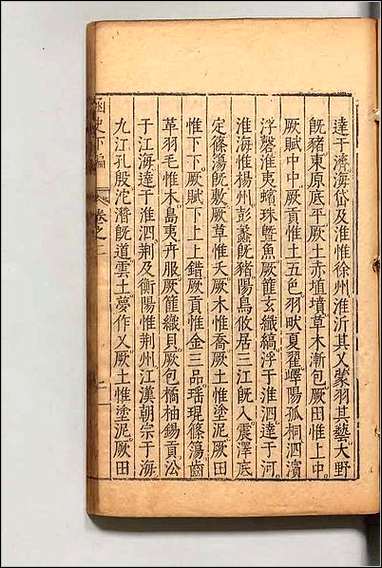 達于濟海岱及淮惟徐州淮沂其乂蒙羽其藝大野
既豬東原底平厥土赤埴墳草木漸包厥田惟上中
厥賦中中厥貢惟土五色羽畎夏翟嶧陽孤桐泗濱
浮磬淮夷蠙珠暨魚厥篚玄纖縞浮于淮泗達于河
淮海惟揚州彭蠡既豬陽鳥攸居三江既入震澤底
定篠簜既敷厥草惟夭厥木惟喬厥土惟塗泥厥田
惟下下厥賦下上上錯厥貢惟金三品瑶琨篠簜齒
革羽毛惟木島夷卉服厥篚織貝厥包橘柚錫貢㳂
于江海達于淮泗荆及衡陽惟荆州江漢朝宗于海
九江孔殷沱潛既道雲土夢作乂厥土惟塗泥厥田
函史下編 卷之二